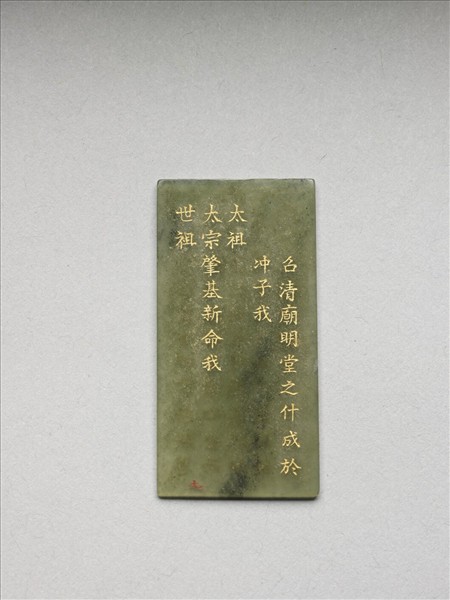 召清廟明堂之什成於
冲子我
太祖
太宗肇基新命我
世祖